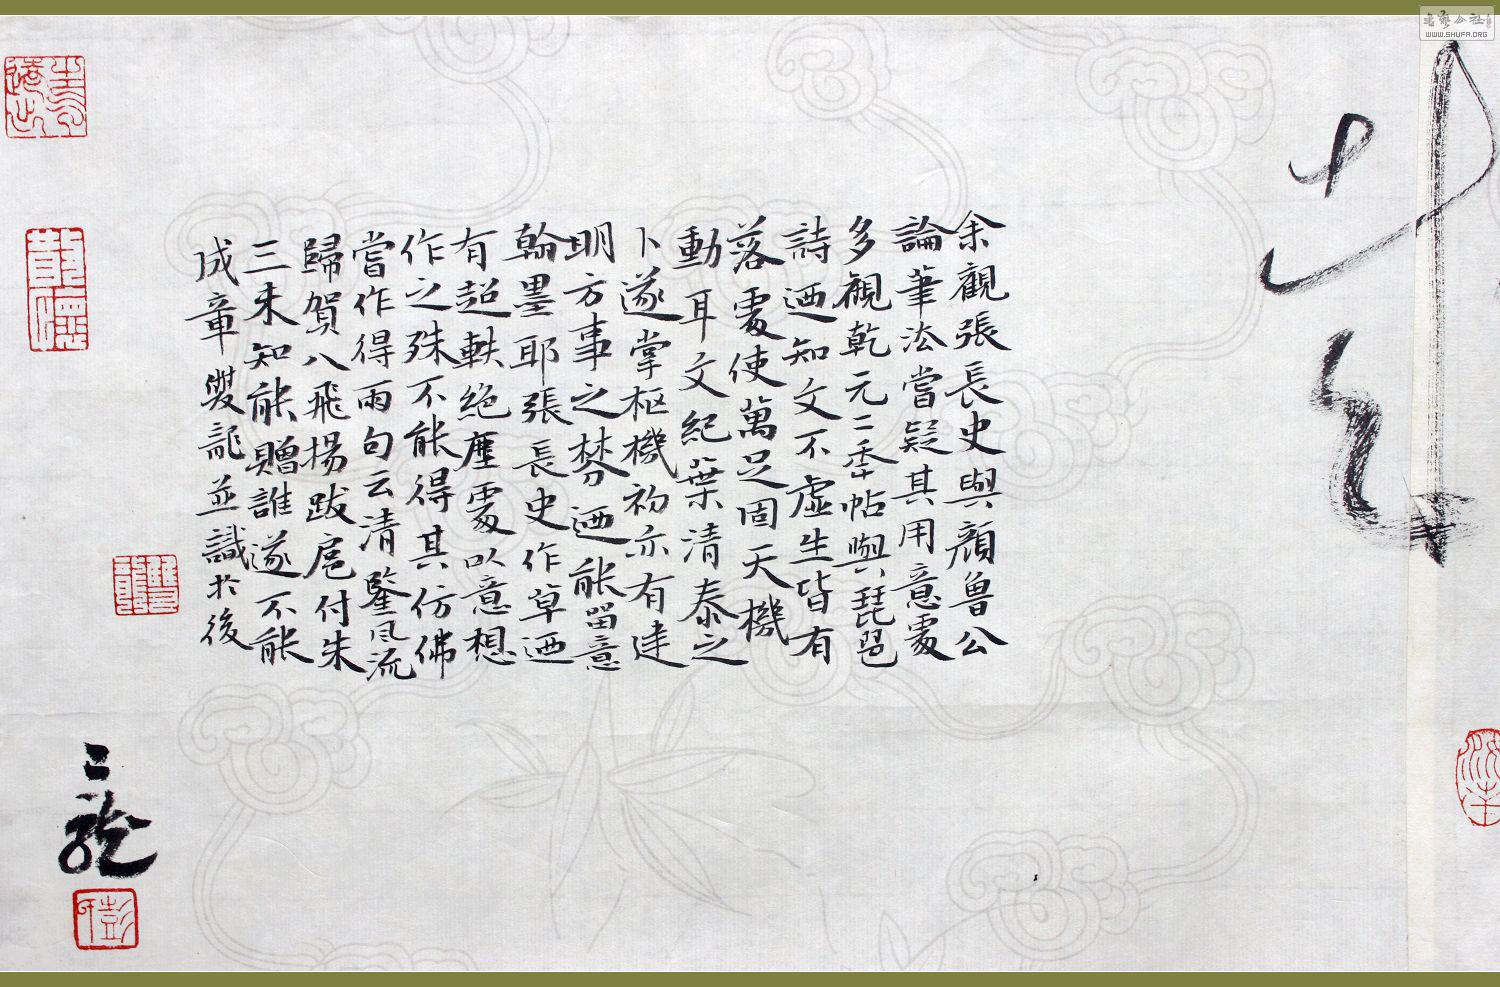 余觀張長史與顏魯公
論筆法嘗疑其用意處
多觀乾元二垂帖與琵琶
詩迺知文不虛生皆有
落處使萬足固天機
動耳文紀葉清泰之
卜遂掌枢機初亦有建
明方事之棼迺能留意
翰墨耶張長史作草迺
有超軼絕塵處以意想
作之殊不能得其仿佛
當作得兩句云清鑒風流
歸賀八飛揚跋扈付朱
三未知能贈誰遂不能
成章雙龍並識於後
二龍
書藝公社
WWW.SHUFA.ORG